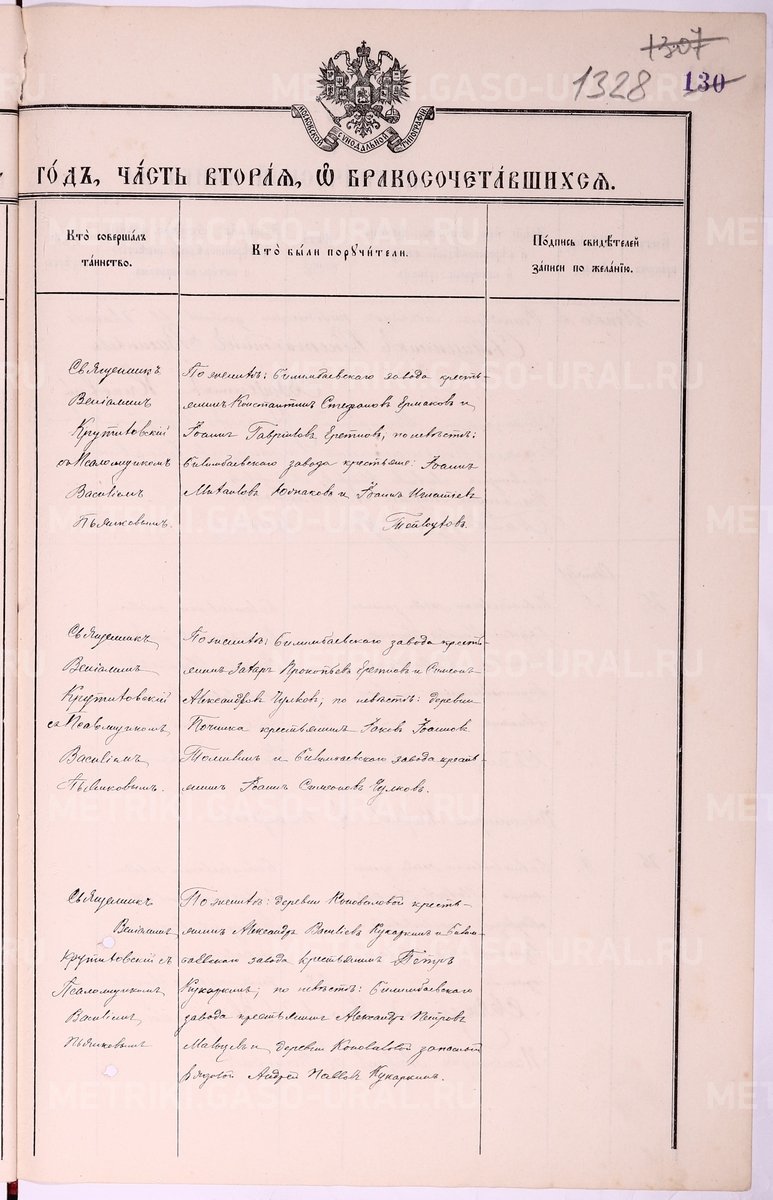 1307
1328
130
МОСКОВСКОЙ СѴНОДАЛЬНОЙ ТИПОГРАФІИ
ГО́ДЪ, ЧА́СТЬ ВТОРА́Я, Ѽ БРАКОСОЧЕТА́ВШИХСЯ.
Кто̀ соверша́лъ
та́инство.
Кто̀ бы́ли поручи́тели.
По́дпись свидѣ́телей
за́писи по жела́нїю.
Священникъ
Веніаминъ
Крутиховскій
съ Псаломщикомъ
Василіемъ
Пьянковымъ.
По женихѣ: Билимбаевскаго завода кресть-
янинъ Константинъ Стефановъ Ермаковъ и
Іоаннъ Гавріиловъ Еретновъ, по невѣстѣ:
Билимбаевскаго завода крестьяне: Іоаннъ
Михаиловъ и Іоаннъ Игнатіевъ
Священникъ
Веніаминъ
Крутиховскій
съ Псаломщикомъ
Василіемъ
Пьянковымъ.
По женихѣ: Билимбаевскаго завода кресть-
янинъ Захаръ Прокопьевъ Еретновъ и Симеонъ
Александровъ Чулковъ, по невѣстѣ: деревни
Починка крестьянинъ Іаковъ Іоанновъ
и Билимбаевскаго завода кресть-
янинъ Іоаннъ Симеоновъ Чулковъ.
Священникъ
Веніаминъ
Крутиховскій съ
Псаломщикомъ
Василіемъ
Пьянковымъ
По женихѣ: деревни Коноваловой кресть-
янинъ Александръ Василіевъ Кукаркинъ и Билим-
баевскаго завода крестьянинъ Петръ
Кукаркинъ; по невѣстѣ: Билимбаевскаго
завода крестьянинъ Александръ Петровъ
Мальцевъ и деревни Коноваловой запасной
рядовой Андрей Павловъ Кукаркинъ.
METRIKI.GASO-URAL.RU